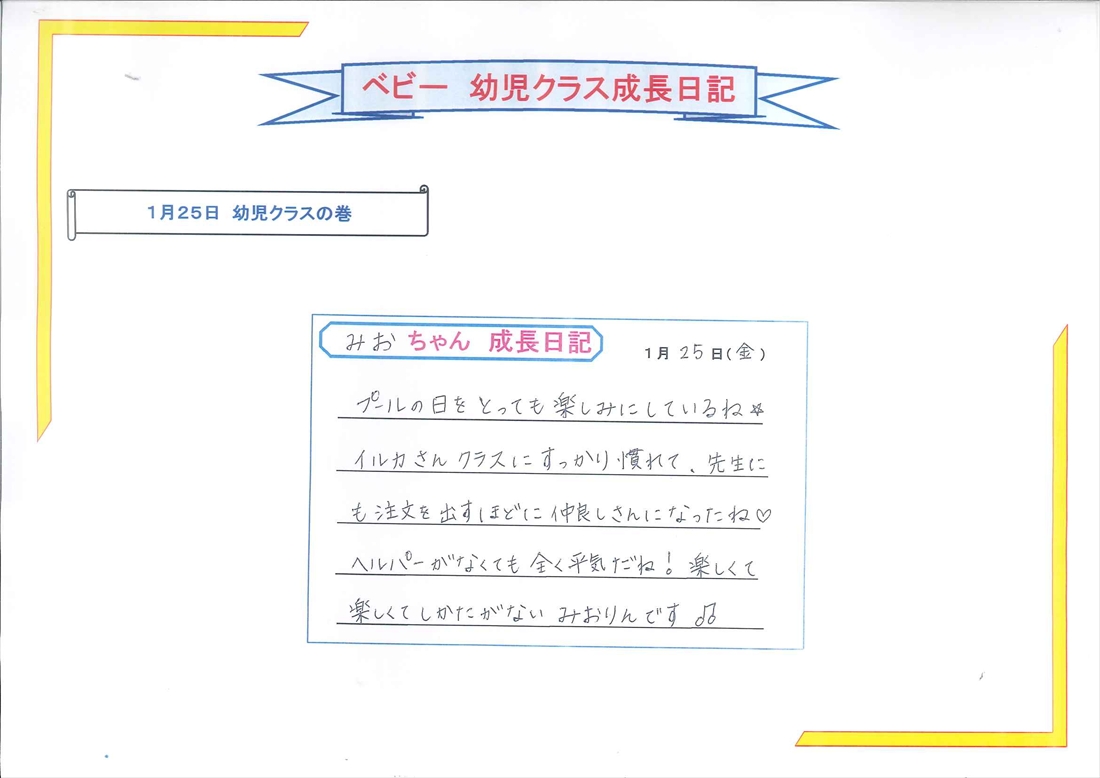 ベビー 幼児クラス成長日記
1月25日 幼児クラスの巻
みおちゃん 成長日記
1月25日(金)
プールの日をとっても楽しみにしているね☆
イルカさんクラスにすっかり慣れて、先生に
も注文を出すほどに仲良しさんになったね♡
ヘルパーがなくても全く平気だね!楽しくて
楽しくてしかたがない みおりんです♫